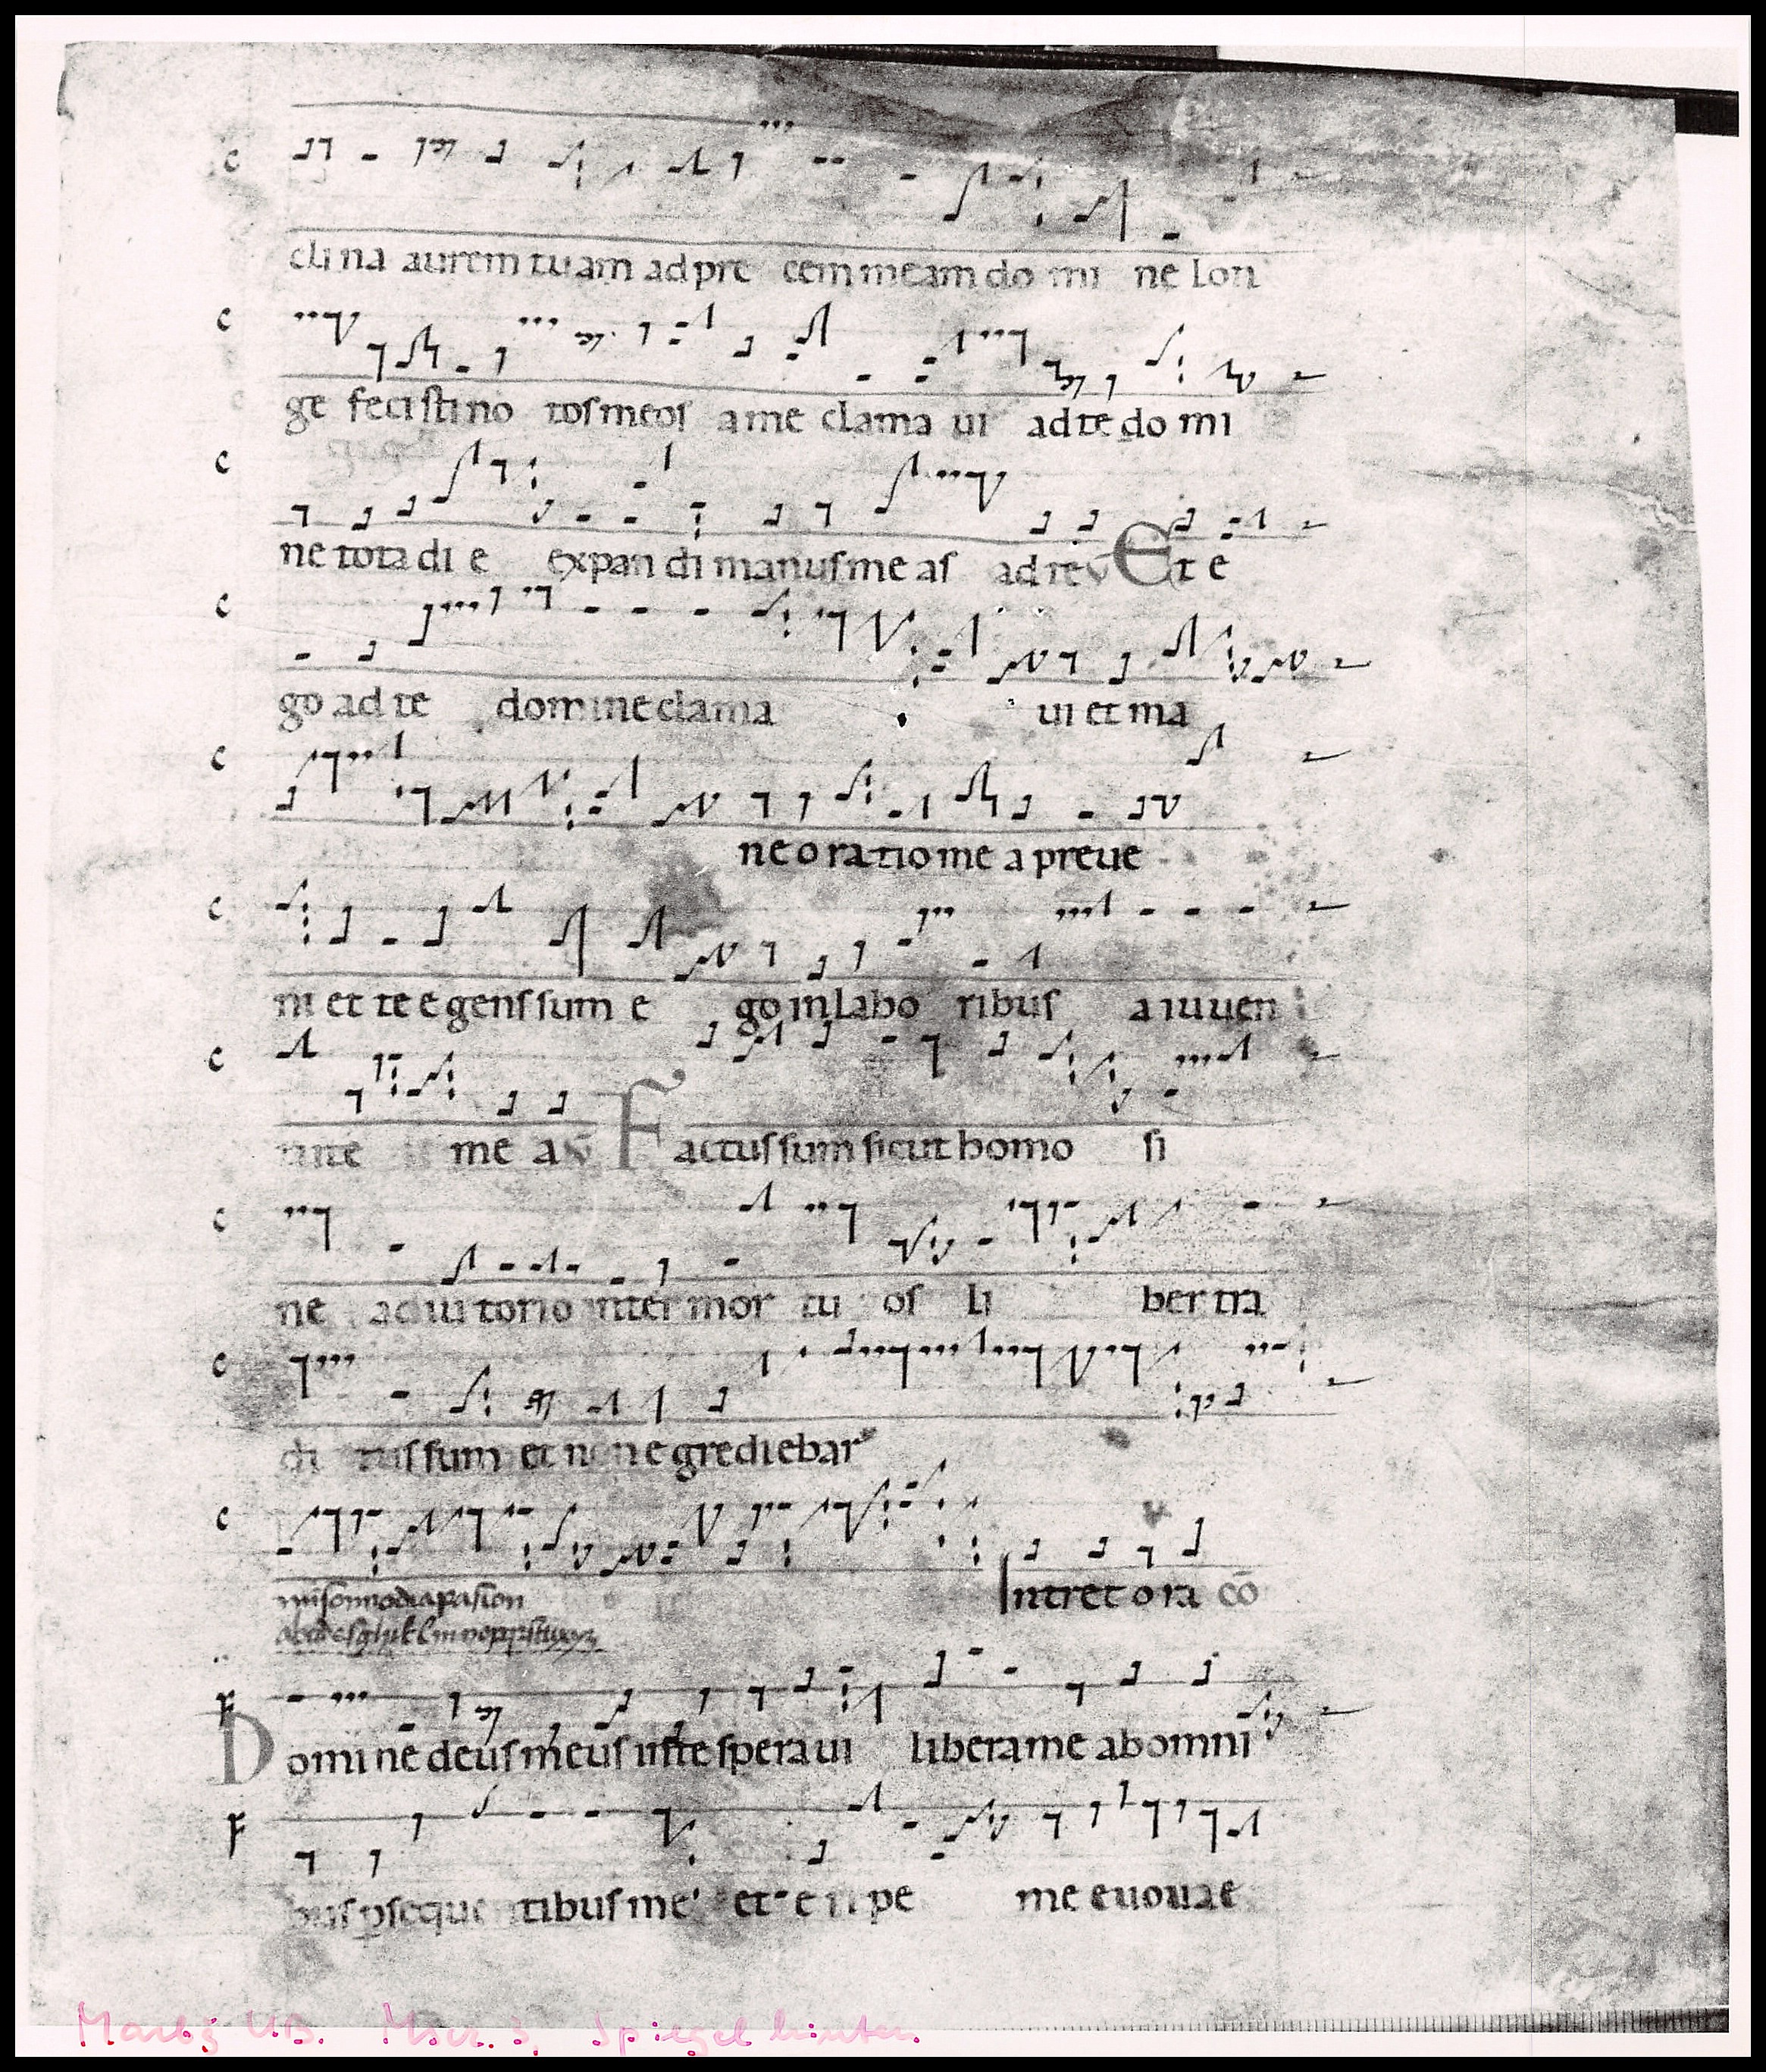 clina aurem tuam ad pre cem meam do mi ne Lon
ge feci sti no tos meos a me clama ui ad te do mi
ne tota di e expan di manus me as ad te v Et e
go ad te domine clama ui et ma
ne oratio me a preue
ni et te egens sum e go in labo ribus a iuuen
tute me a v Factus sum sicut homo si
ne adiu torio inter mor tu os li ber tra
di tus sum et non egrediebar
Intret ora cō
Domine deus meus in te speraui libera me ab omni
bus pseque tibus me et eripe me euouae
Spiegel hinten